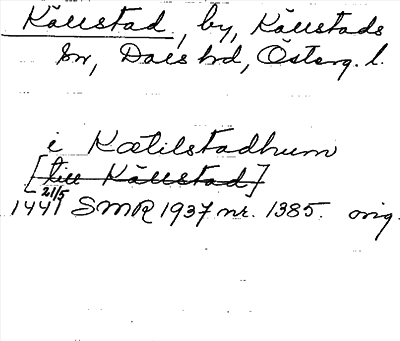 Källstad, by, Källstads
sn, Dals hd, Österg. l.
i Kætilstadhum
[till Källstad]
21/5
1441 SMR 1937 nr. 1385. orig.